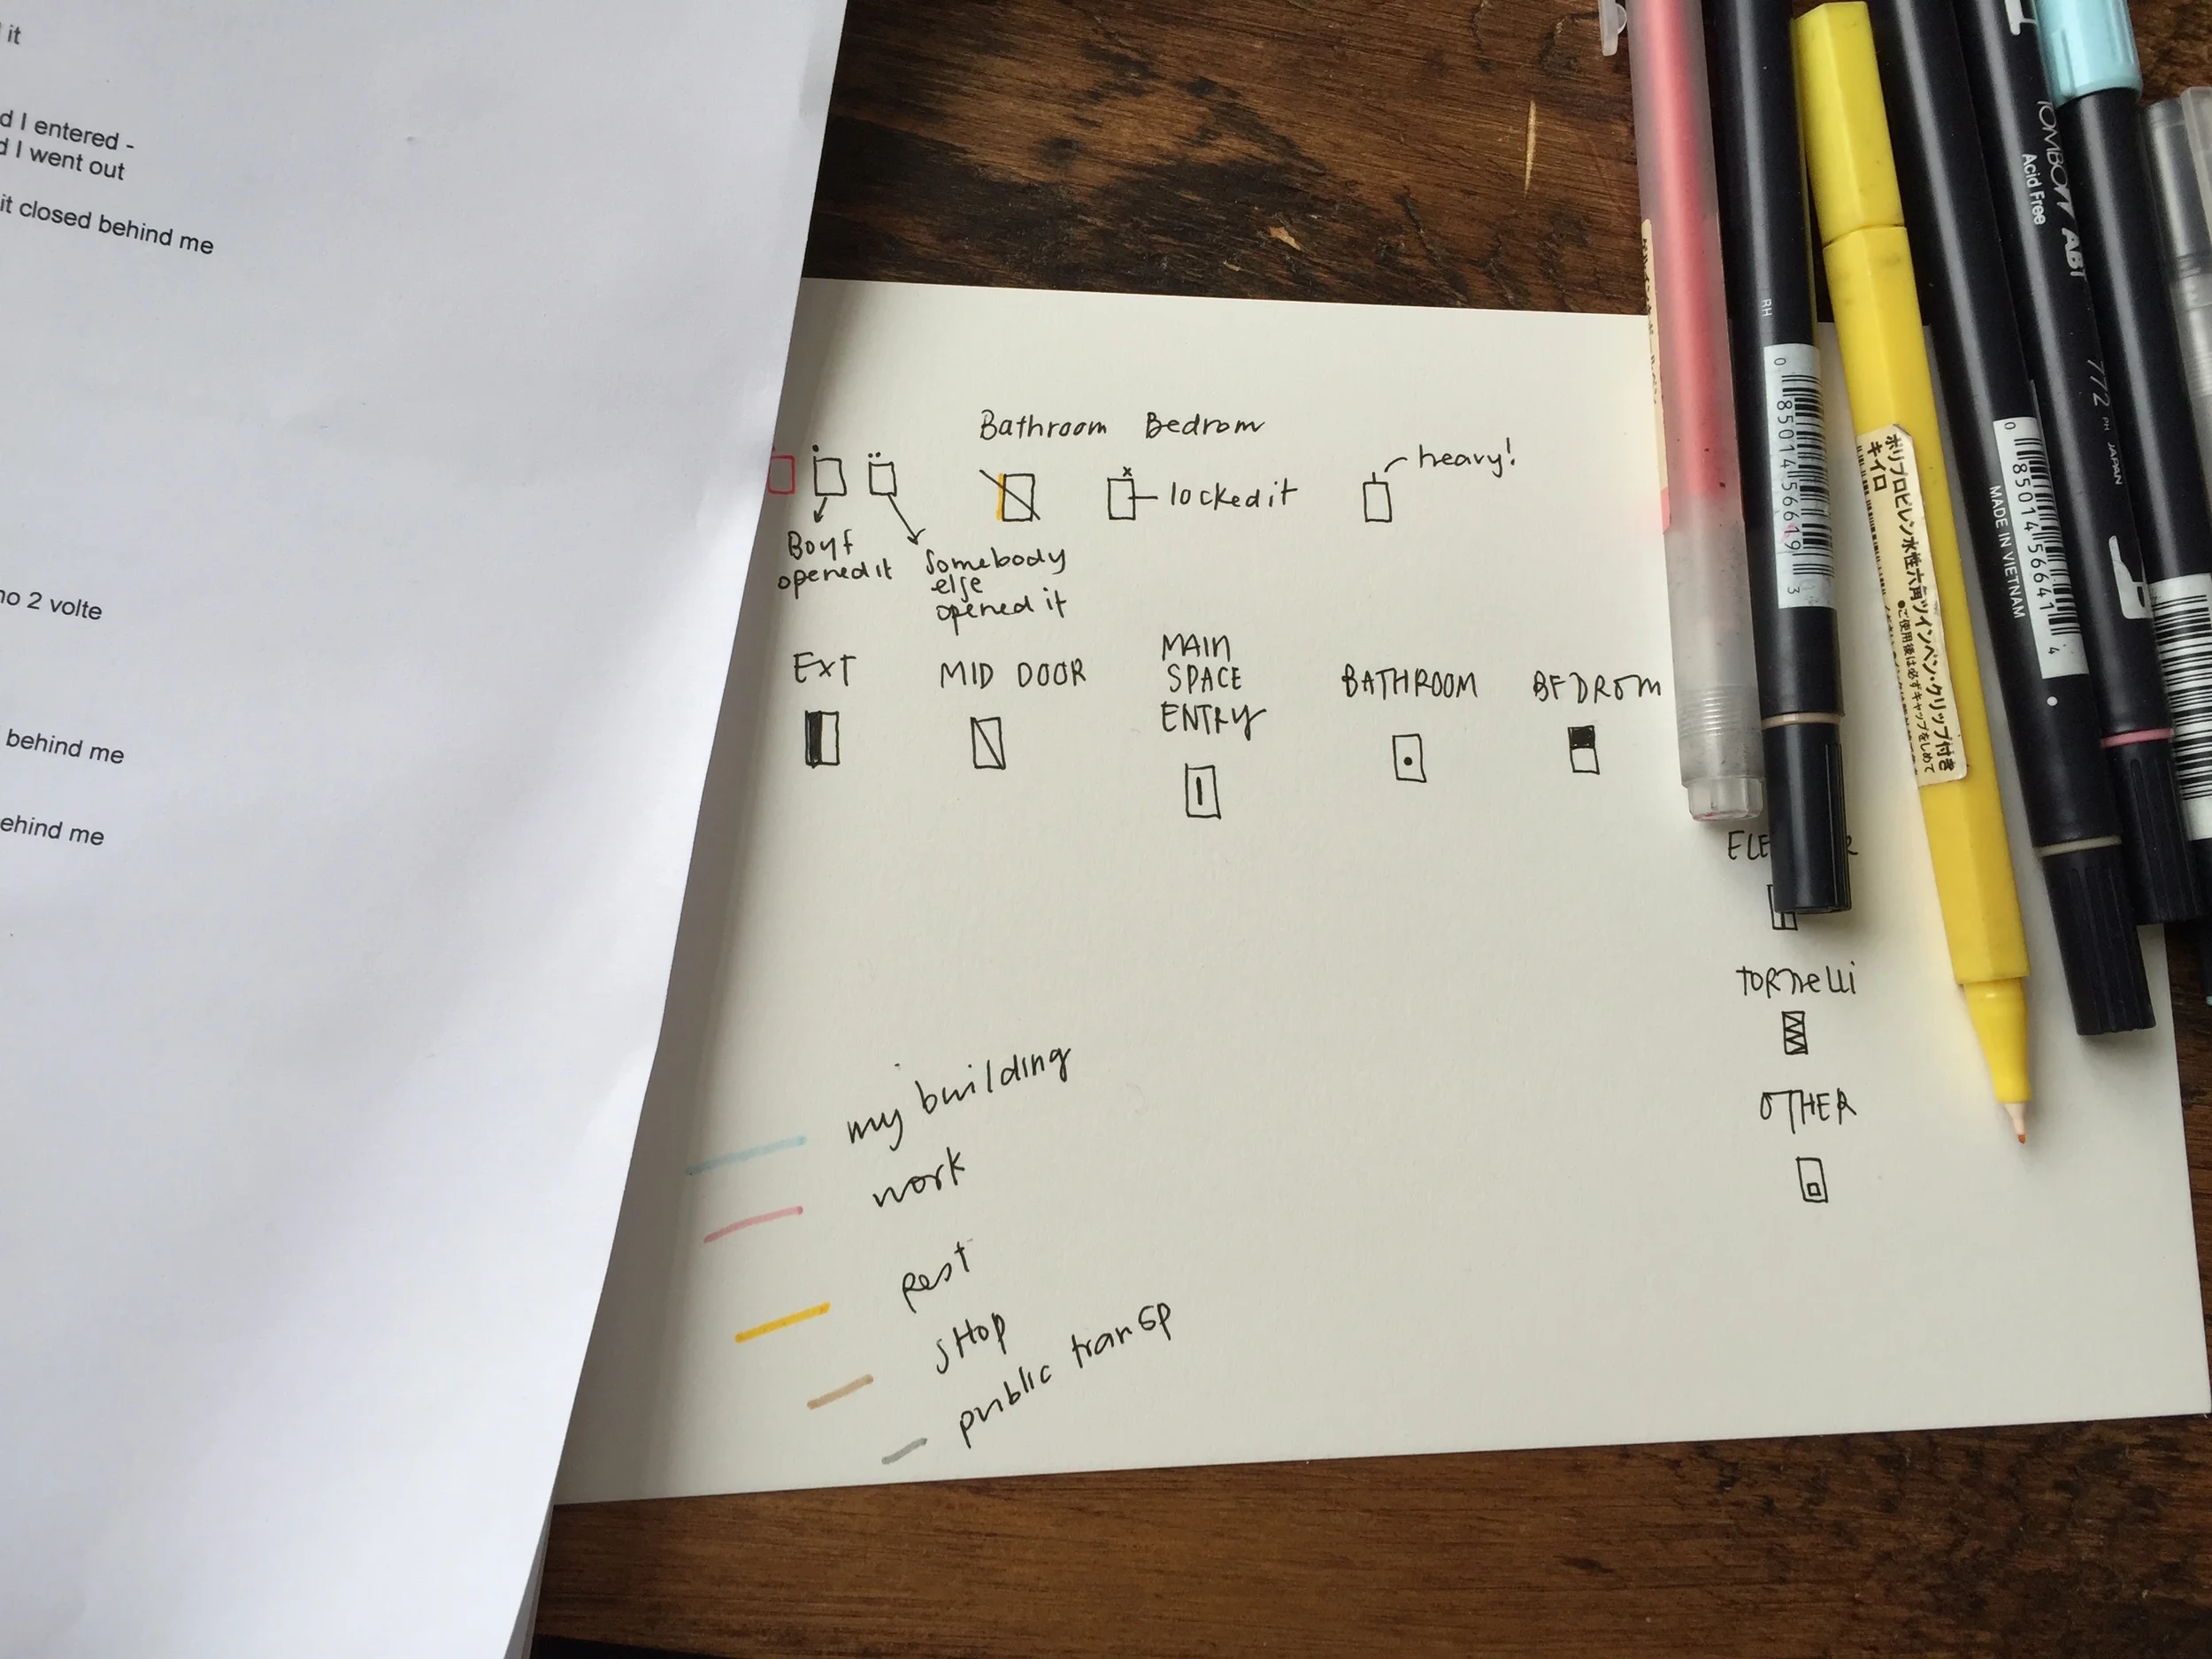 it
d I entered -
d I went out
it closed behind me
no 2 volte
behind me
ehind me
Bathroom Bedrom
heavy!
locked it
Boyf
opened it
Somebody
else
opened it
EXT
MID DOOR
MAIN
SPACE
ENTRY
BATHROOM
BEDROM
TORNELLI
OTHER
my building
work
REST
SHOP
public transp
RH
0 85014 56619 3
ポリプロピレン水性六角ツインペン・クリップ付き
キイロ
●ご使用後は必ずキャップをしめて
MADE IN VIETNAM
0 85014 56641 4
TOMBOW ABT
Acid Free
772 PH JAPAN